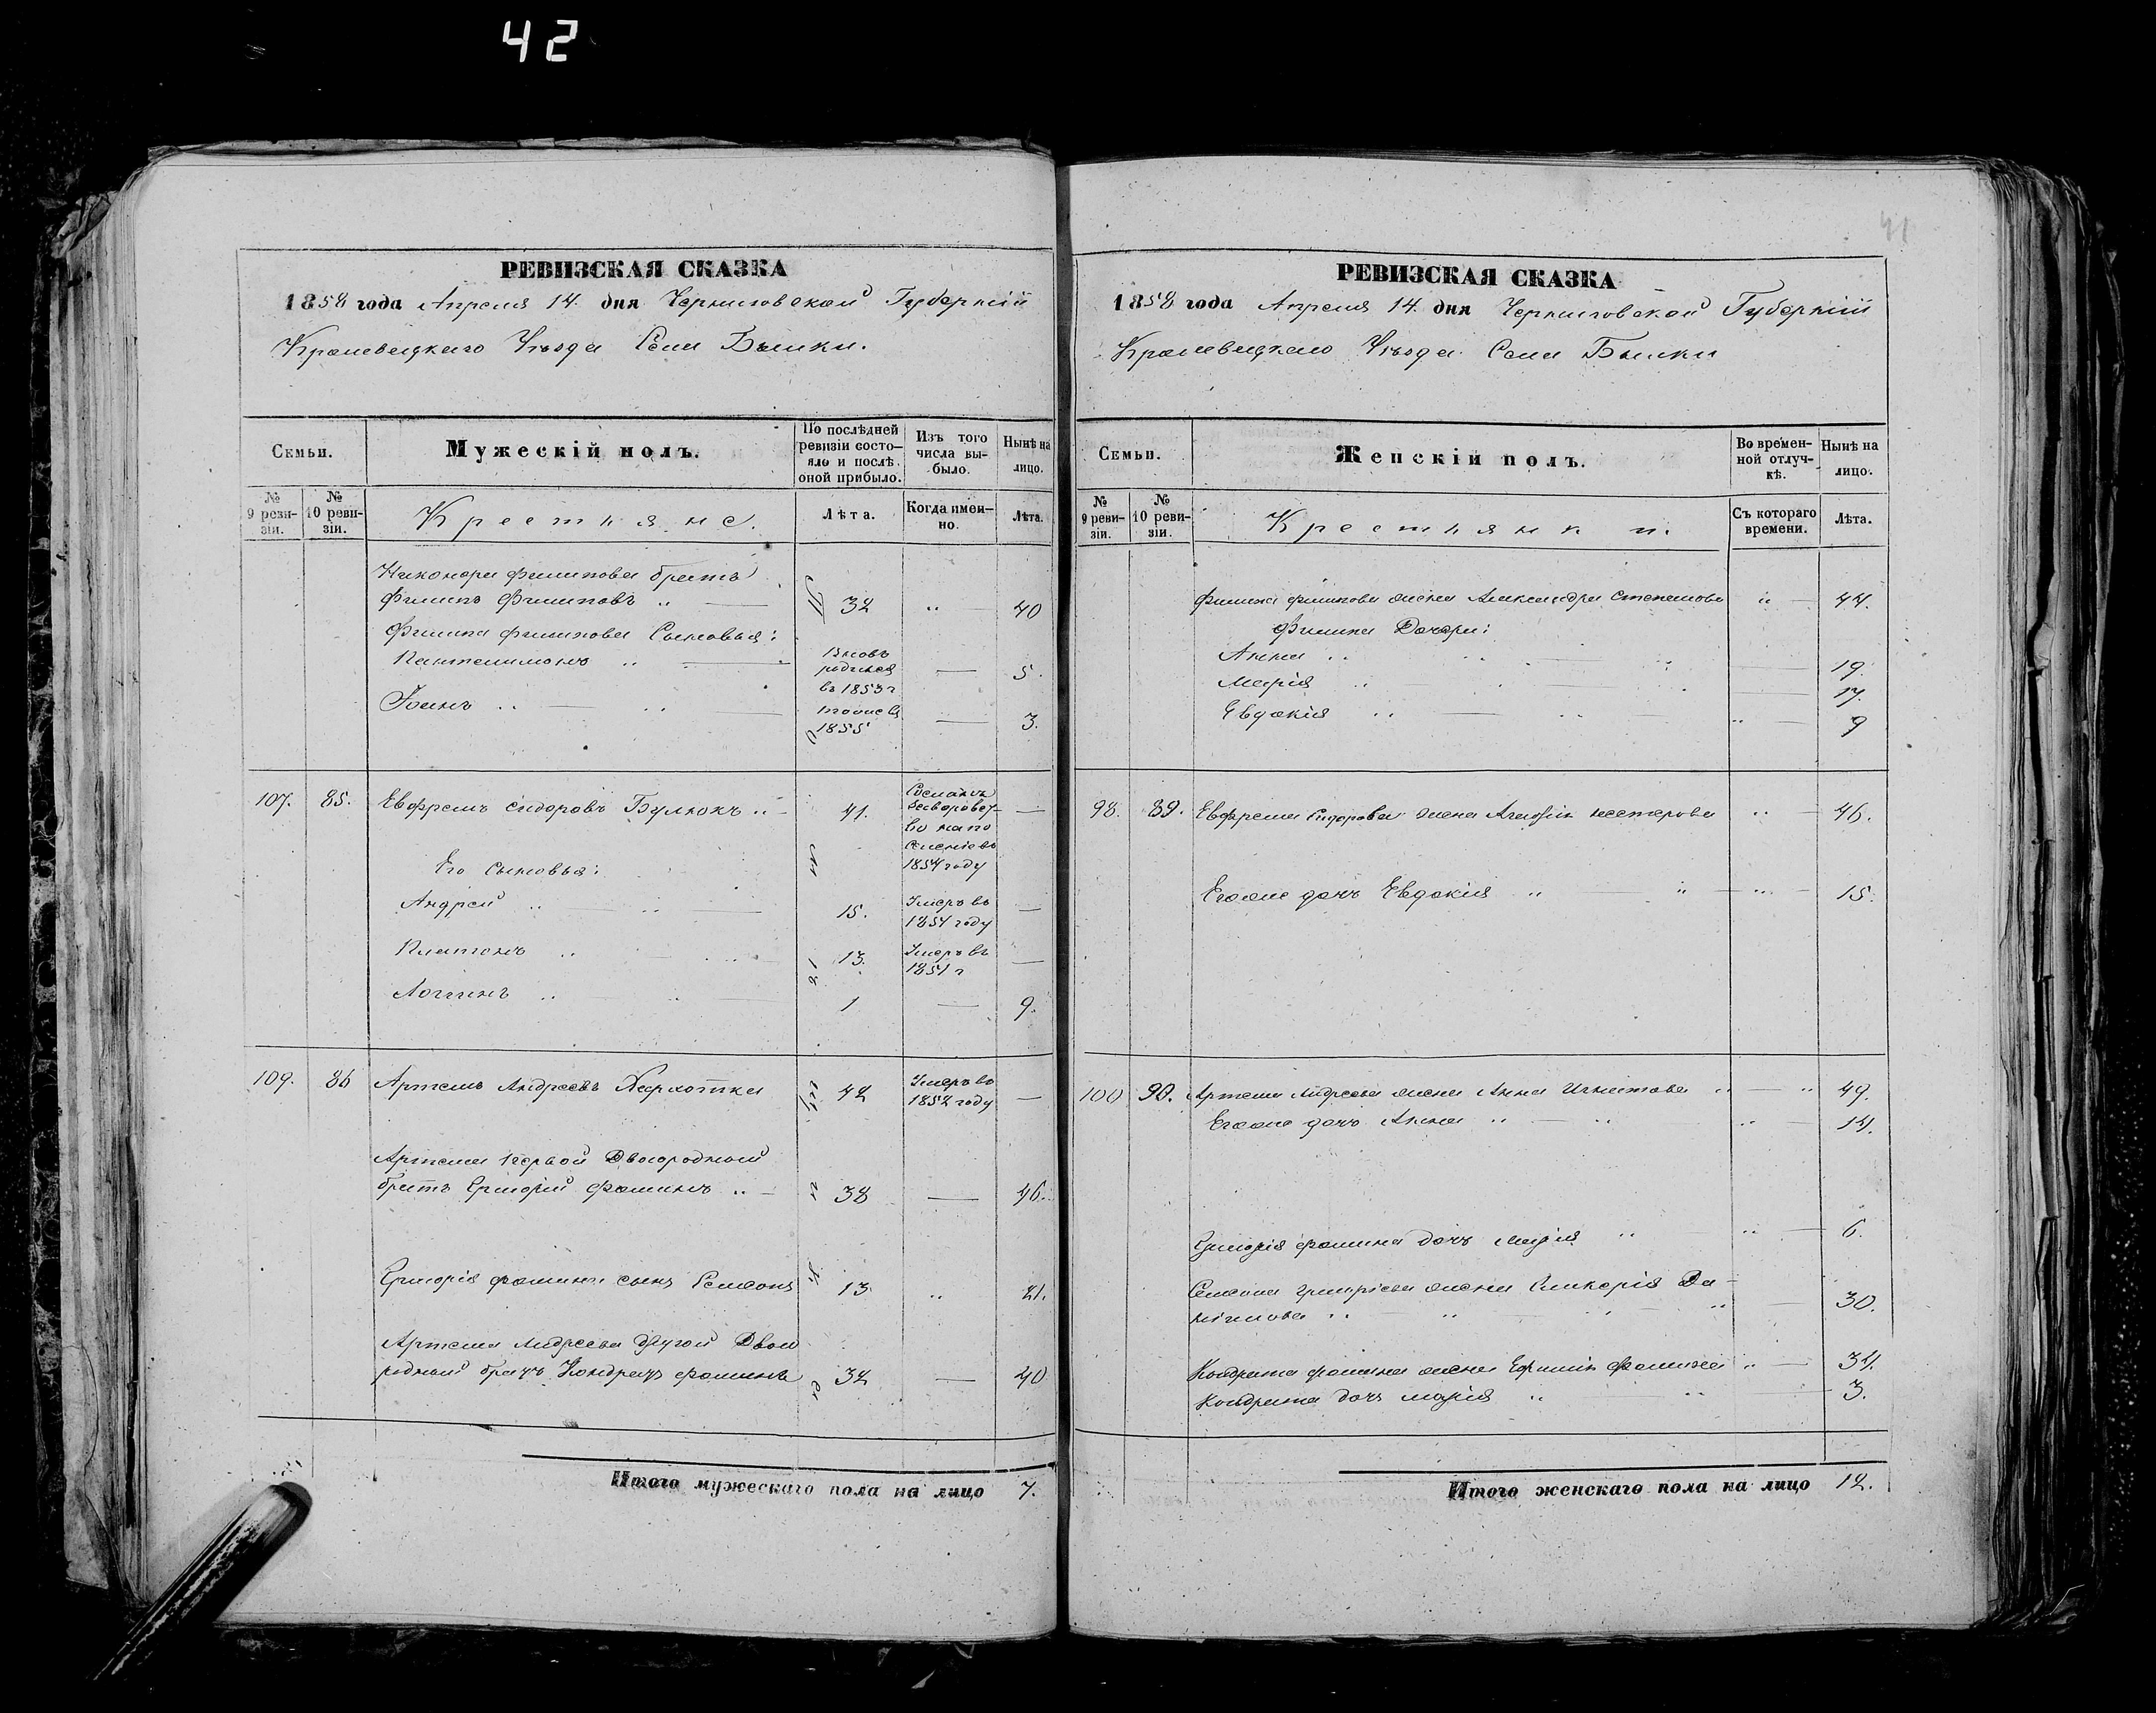 42
41
РЕВИЗСКАЯ СКАЗКА
1858 года Апреля 14. дня Черниговской Губерніи
Кролевецкаго Уѣзда Села Былки.
Семьи.
Мужескій полъ.
По послѣдней
ревизіи состо-
яло и послѣ
оной прибыло.
Изъ того
числа вы-
было.
Нынѣ на
лицо.
№
9 реви-
зіи.
№
10 реви-
зіи.
Крестьяне.
Лѣта.
Когда имен-
но.
Лѣта.
Никонора Филипова братъ
Филипъ Филиповъ 32 40
Филипа Филипова Сыновья:
Пантелимонъ
Вновь
родился
въ 1853 г
5.
Іоанъ
тоже въ
1855
3.
107. 85. Евфремъ Сидоровъ Булюкъ 41.
Сосланъ
на по
селеніе въ
1854 году
Его Сыновья:
Андрей 15. Умеръ въ
1851 году
Платонъ 13. Умеръ въ
1851 г
Логгинъ 1 9.
109. 86 Артемъ Андреевъ 42 Умеръ въ
1852 году
Артема первой Двоюродный
братъ Григорій Фоминъ 38 46.
Григорія Фомина сынъ Самсонъ 13 21.
Артема Андреева другой Двою
родный братъ Кондратъ Фоминъ 32 40
Итого мужескаго пола на лицо 7.
РЕВИЗСКАЯ СКАЗКА
1858 года Апреля 14. дня Черниговской Губерніи
Кролевецкаго Уѣзда Села Былки
Семьи.
Женскій полъ.
Во времен-
ной отлуч-
кѣ.
Нынѣ на
лицо.
№
9 реви-
зіи.
№
10 реви-
зіи.
Крестьянки.
Съ котораго
времени.
Лѣта.
Филипа Филипова жена Александра Степанова 44.
Филипа Дочери:
Анна 19.
Марія 17.
Евдокія 9
98. 89. Евфрема Сидорова жена Агафія Нестерова 46.
Егоже дочъ Евдокія 15.
100 90. Артема Андреева жена Анна Игнатова 49.
Егоже дочъ Анна 14.
Григорія Фомина дочъ Марія 6.
Самсона Григоріева жена Гликерія Да-
нилова 30.
Кондрата Фомина жена Ефимія Фомина 34.
Кондрата дочъ Марія 3.
Итого женскаго пола на лицо 12.